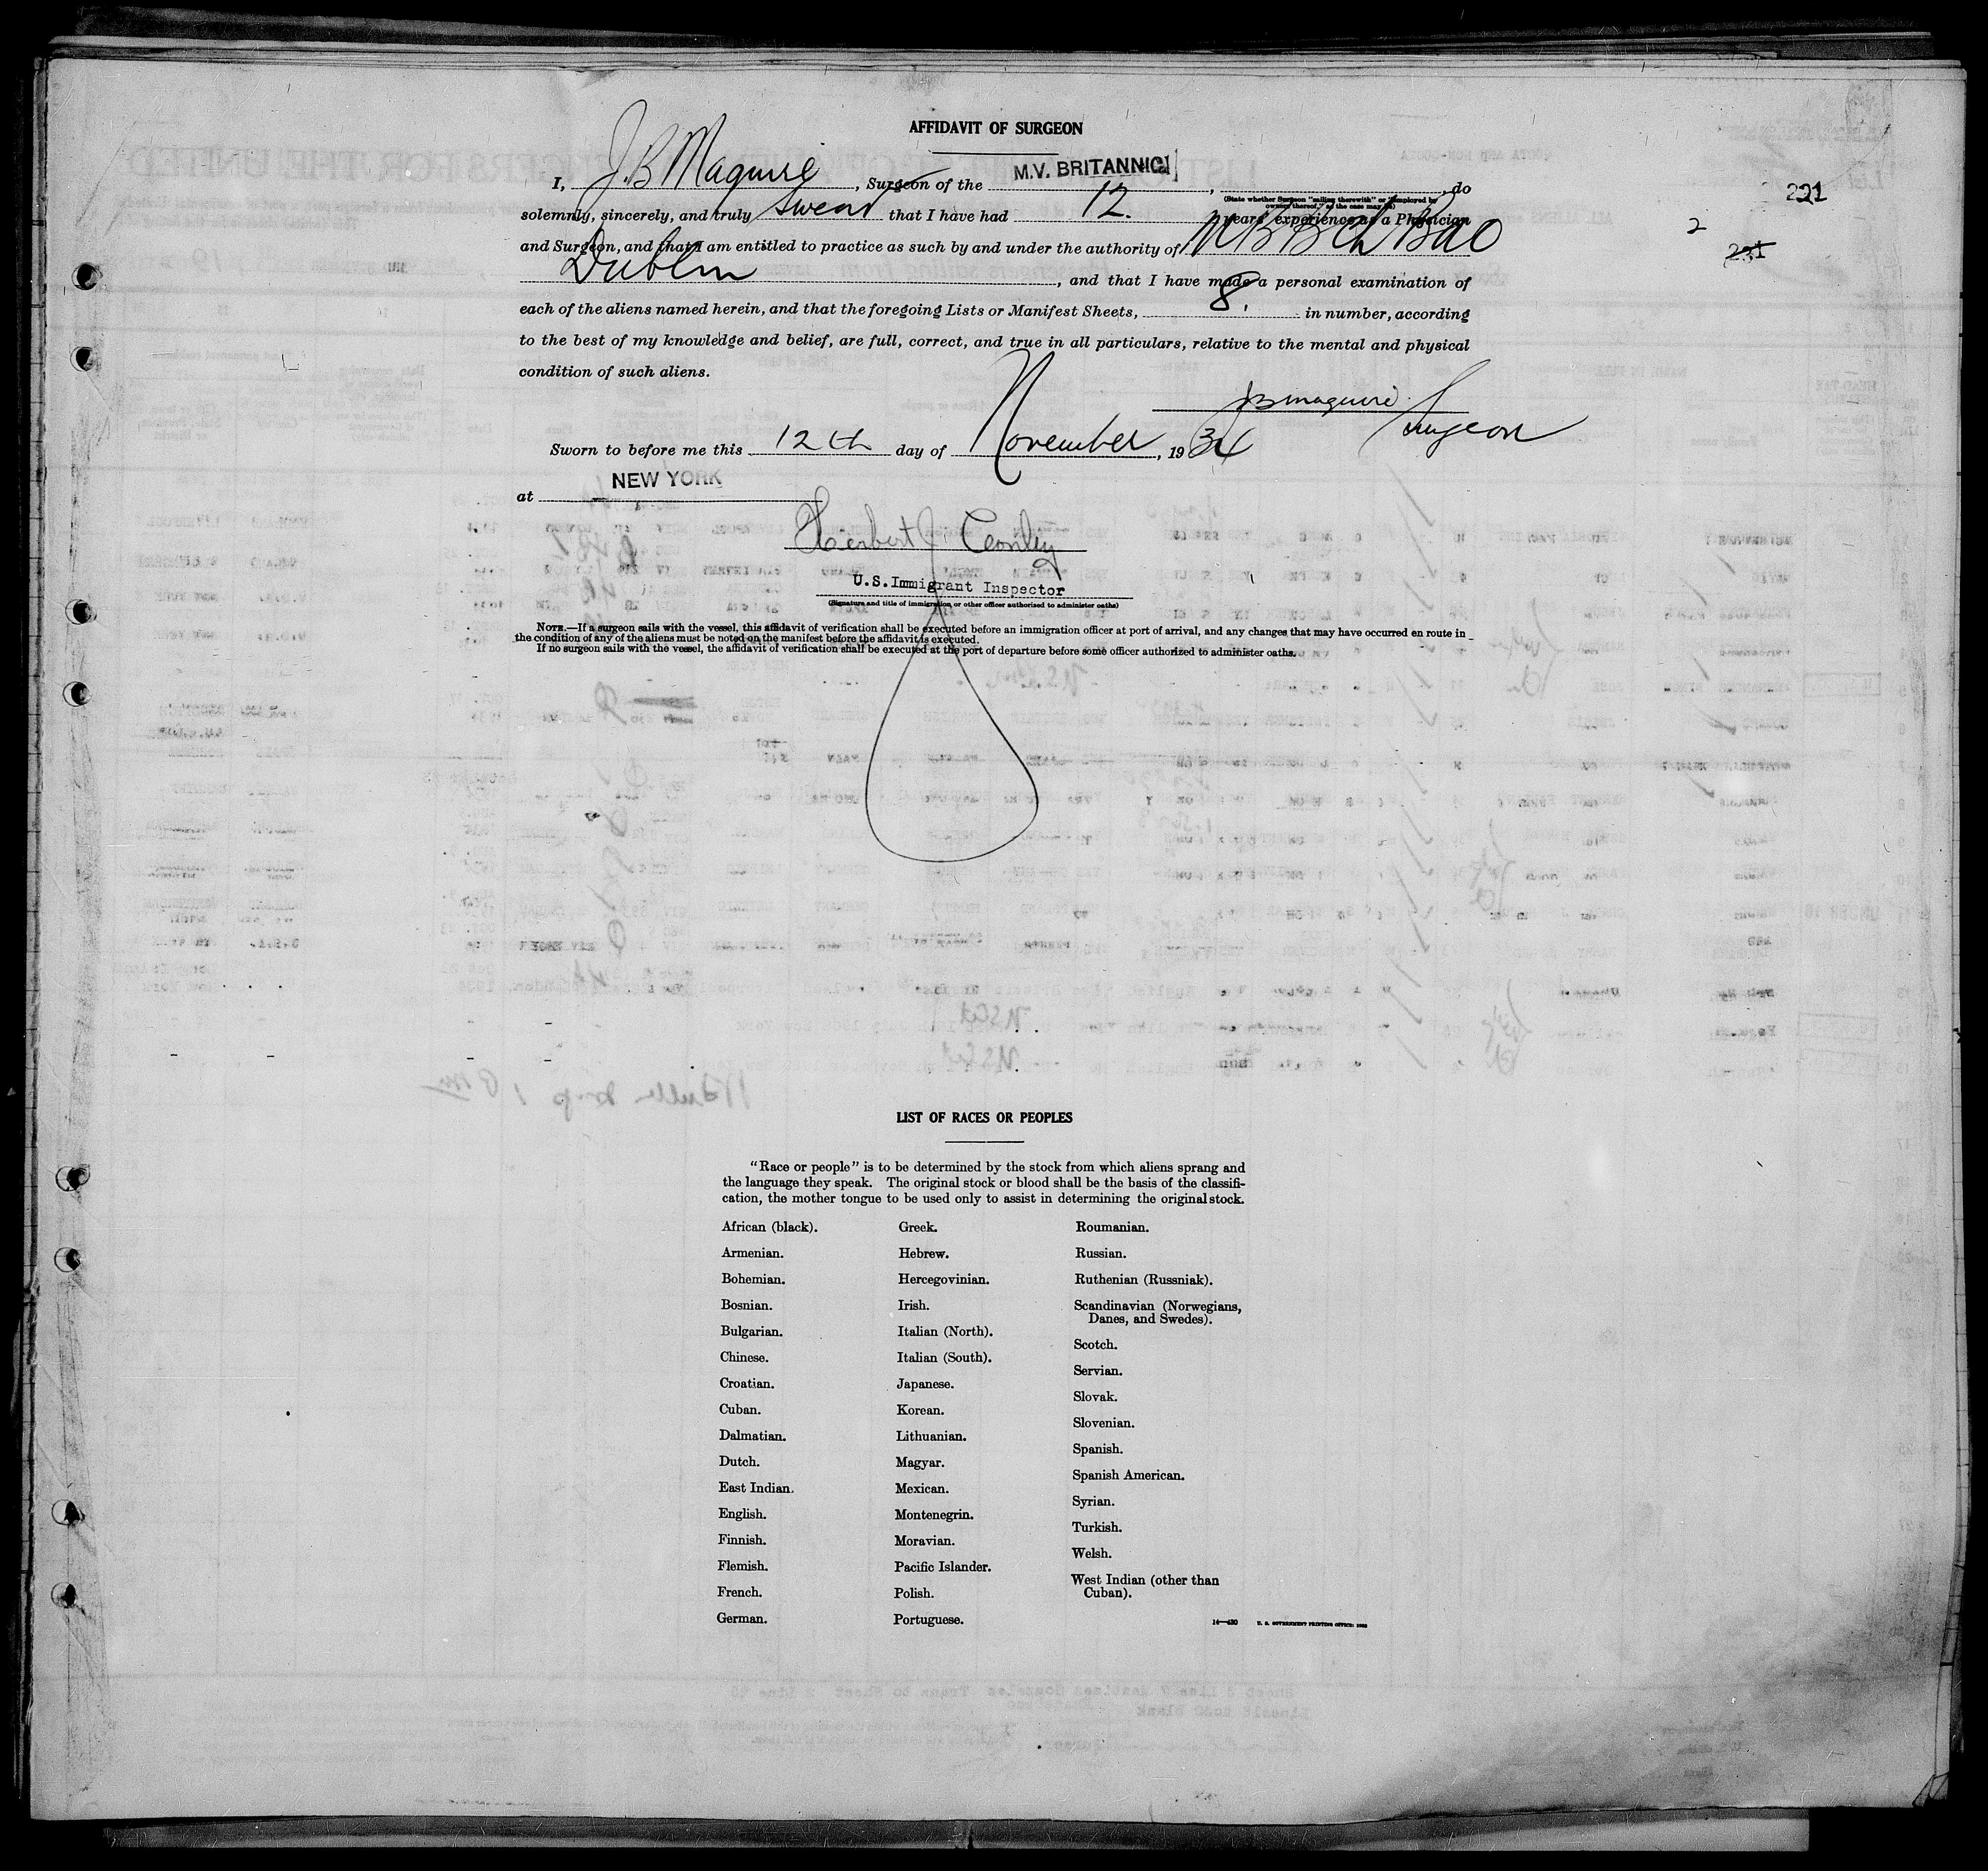 AFFIDAVIT OF SURGEON
I, J.B Maguire, Surgeon of the M.V. BRITANNIC, , do
(State whether Surgeon "sailing therewith" or "employed by owners thereof," as the case may be)
221
solemnly, sincerely, and truly swear that I have had 12. years' experience as a Physician
2
and Surgeon, and that I am entitled to practice as such by and under the authority of M B B Ch BAO
221
Dublin, and that I have made a personal examination of
each of the aliens named herein, and that the foregoing Lists or Manifest Sheets, 8. in number, according
to the best of my knowledge and belief, are full, correct, and true in all particulars, relative to the mental and physical
condition of such aliens.
JB Maguire
Surgeon
Sworn to before me this 12th day of November, 1934
at NEW YORK
Herbert J.
U.S. Immigrant Inspector
(Signature and title of immigration or other officer authorized to administer oaths)
NOTE.—If a surgeon sails with the vessel, this affidavit of verification shall be executed before an immigration officer at port of arrival, and any changes that may have occurred en route in
the condition of any of the aliens must be noted on the manifest before the affidavit is executed.
If no surgeon sails with the vessel, the affidavit of verification shall be executed at the port of departure before some officer authorized to administer oaths.
LIST OF RACES OR PEOPLES
"Race or people" is to be determined by the stock from which aliens sprang and
the language they speak. The original stock or blood shall be the basis of the classifi-
cation, the mother tongue to be used only to assist in determining the original stock.
African (black).
Armenian.
Bohemian.
Bosnian.
Bulgarian.
Chinese.
Croatian.
Cuban.
Dalmatian.
Dutch.
East Indian.
English.
Finnish.
Flemish.
French.
German.
Greek.
Hebrew.
Hercegovinian.
Irish.
Italian (North).
Italian (South).
Japanese.
Korean.
Lithuanian.
Magyar.
Mexican.
Montenegrin.
Moravian.
Pacific Islander.
Polish.
Portuguese.
Roumanian.
Russian.
Ruthenian (Russniak).
Scandinavian (Norwegians,
Danes, and Swedes).
Scotch.
Servian.
Slovak.
Slovenian.
Spanish.
Spanish American.
Syrian.
Turkish.
Welsh.
West Indian (other than
Cuban).
14—430 U. S. GOVERNMENT PRINTING OFFICE: